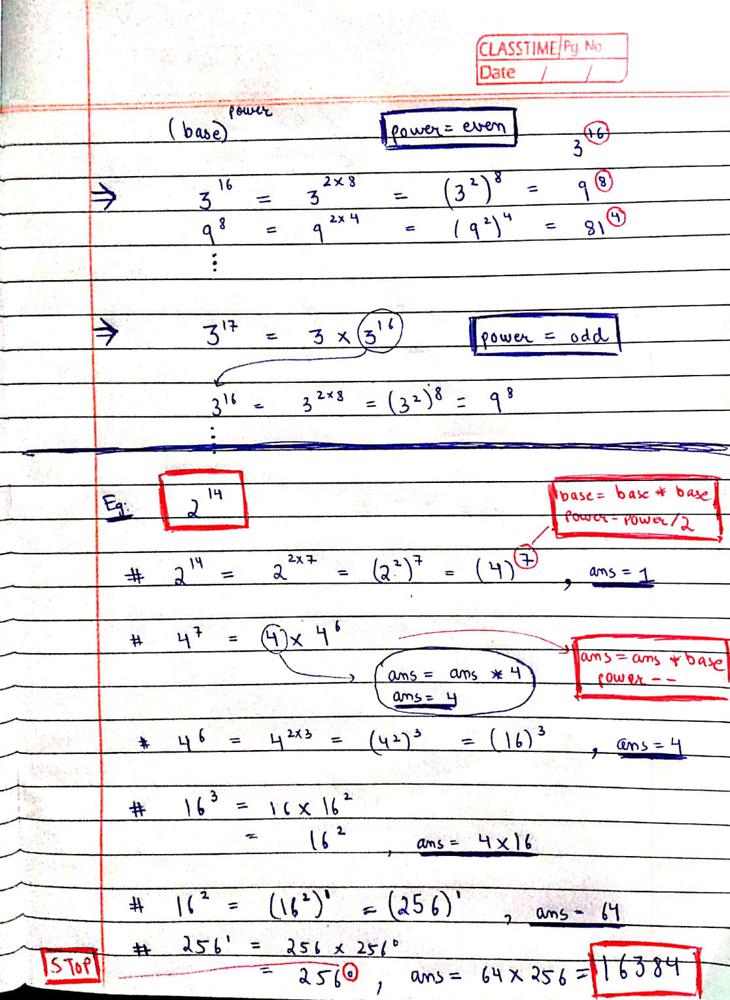 CLASSTIME Pg. No
Date / /
(base)^power power = even 3^16
⇒ 3^16 = 3^2×8 = (3^2)^8 = 9^8
9^8 = 9^2×4 = (9^2)^4 = 81^4
⋮
⇒ 3^17 = 3 × 3^16 power = odd
3^16 = 3^2×8 = (3^2)^8 = 9^8
⋮
Eg: 2^14
base = base * base
power = power/2
# 2^14 = 2^2×7 = (2^2)^7 = (4)^7, ans = 1
# 4^7 = 4 × 4^6
ans = ans * 4
ans = 4
ans = ans * base
power --
# 4^6 = 4^2×3 = (4^2)^3 = (16)^3, ans = 4
# 16^3 = 16 × 16^2
= 16^2, ans = 4×16
# 16^2 = (16^2)^1 = (256)^1, ans = 64
# 256^1 = 256 × 256^0
STOP = 256^0, ans = 64 × 256 = 16384